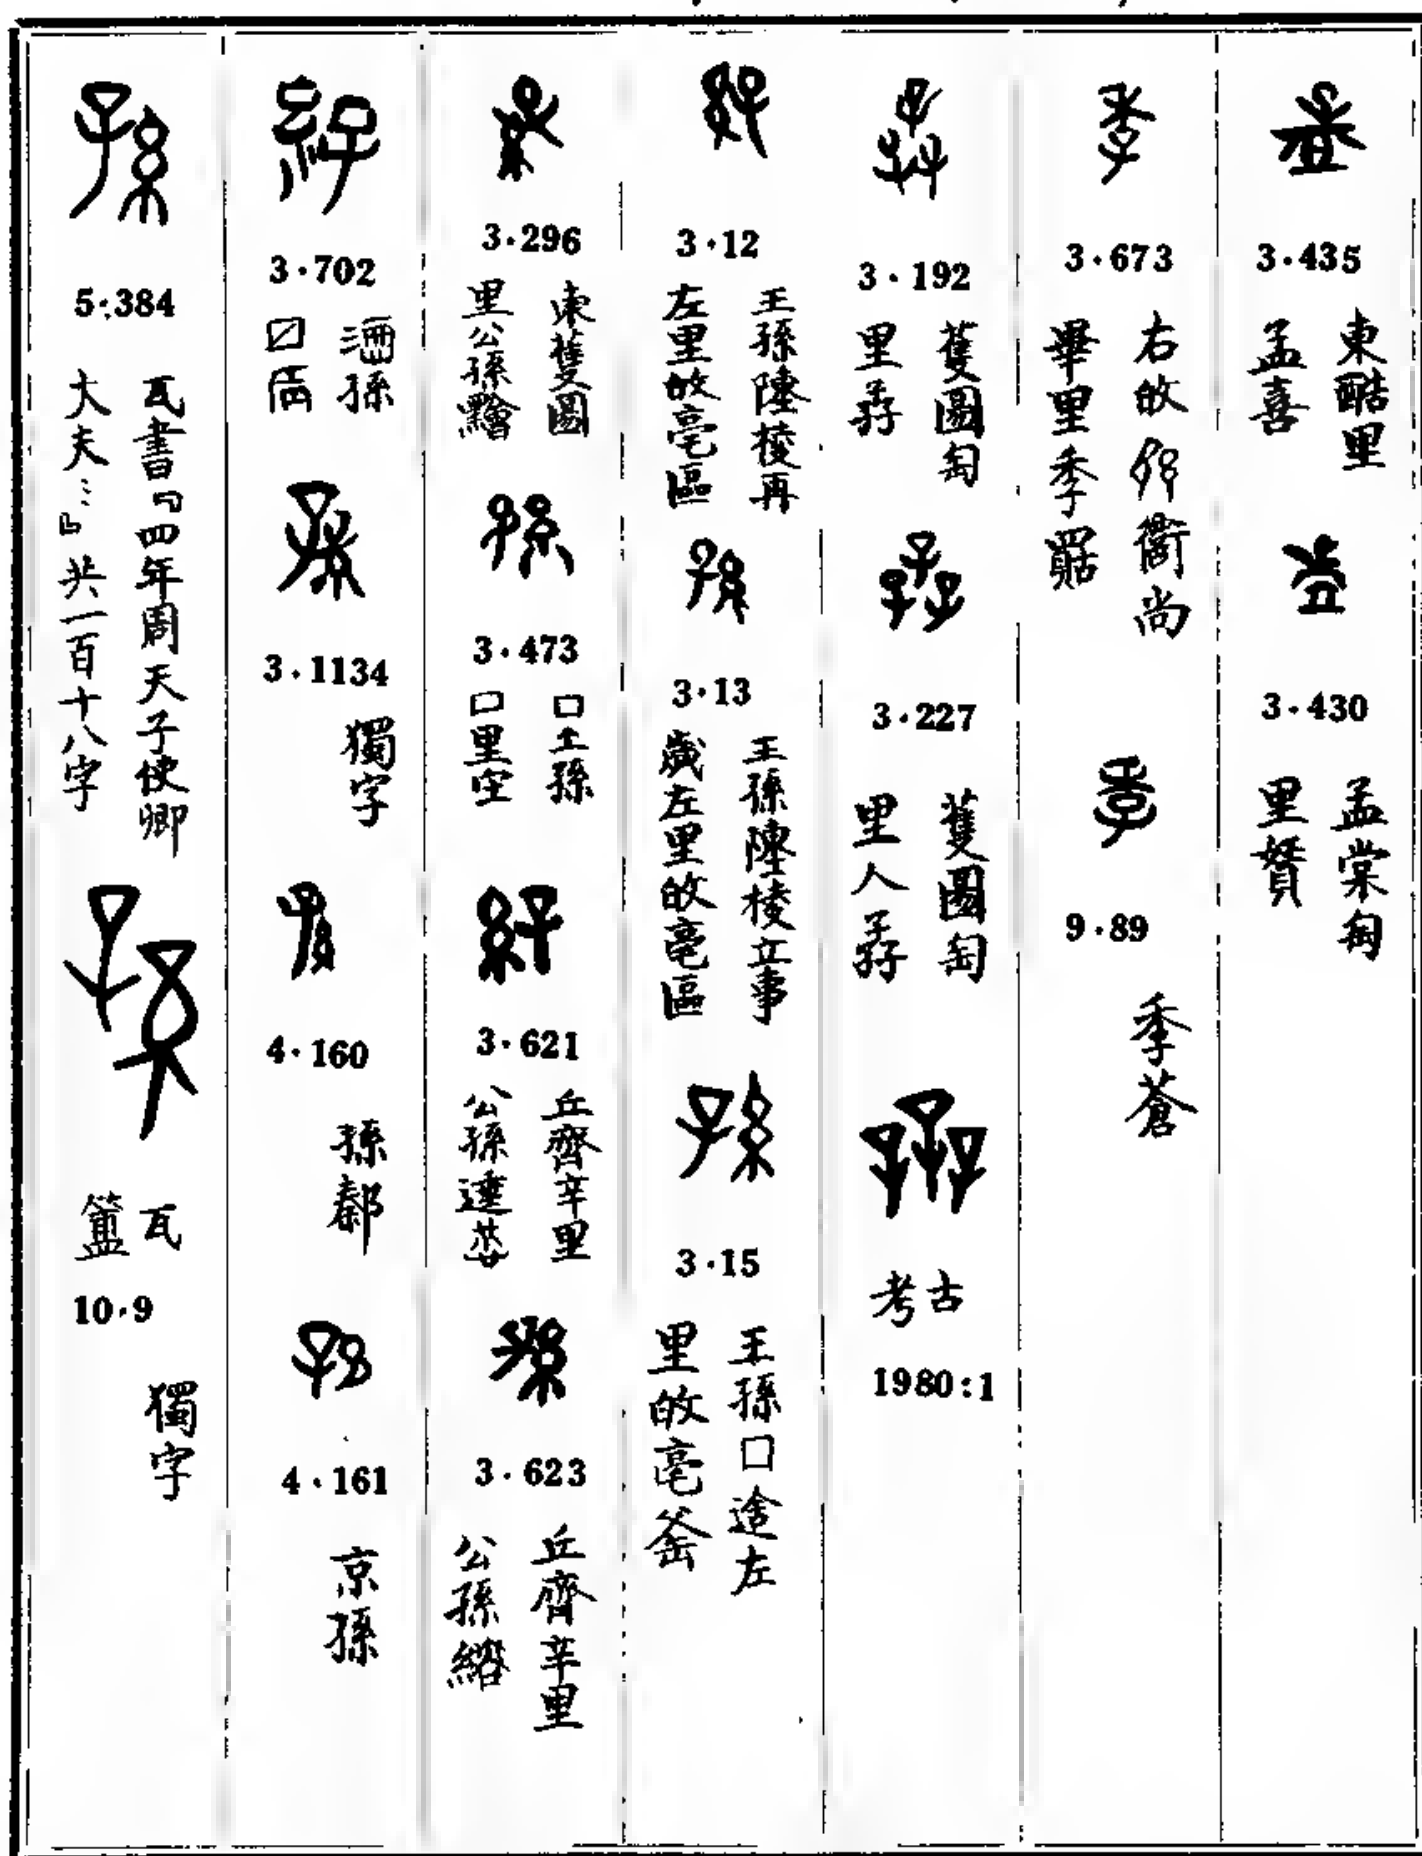 3·435
東酷里
孟喜
3·430
孟棠匋
里賢
3·673
右故
衢尚
畢里季
9·89
季蒼
3·192
蒦圆匋
里孨
3·227
蒦圆匋
里人孨
考古
1980:1
3·12
王孫陳棱再
左里故亳區
3·13
王孫陳棱立事
歲左里故亳區
3·15
王孫囗途左
里故亳釜
3·296
東蒦圆
里公孫
3·473
囗土孫
囗里
3·621
丘齊辛里
公孫
3·623
丘齊辛里
公孫
3·702
孫
3·1134
獨字
4·160
孫
4·161
京孫
5·384
瓦書『四年周天子使卿
大夫…』共一百十八字
瓦
10·9
獨字